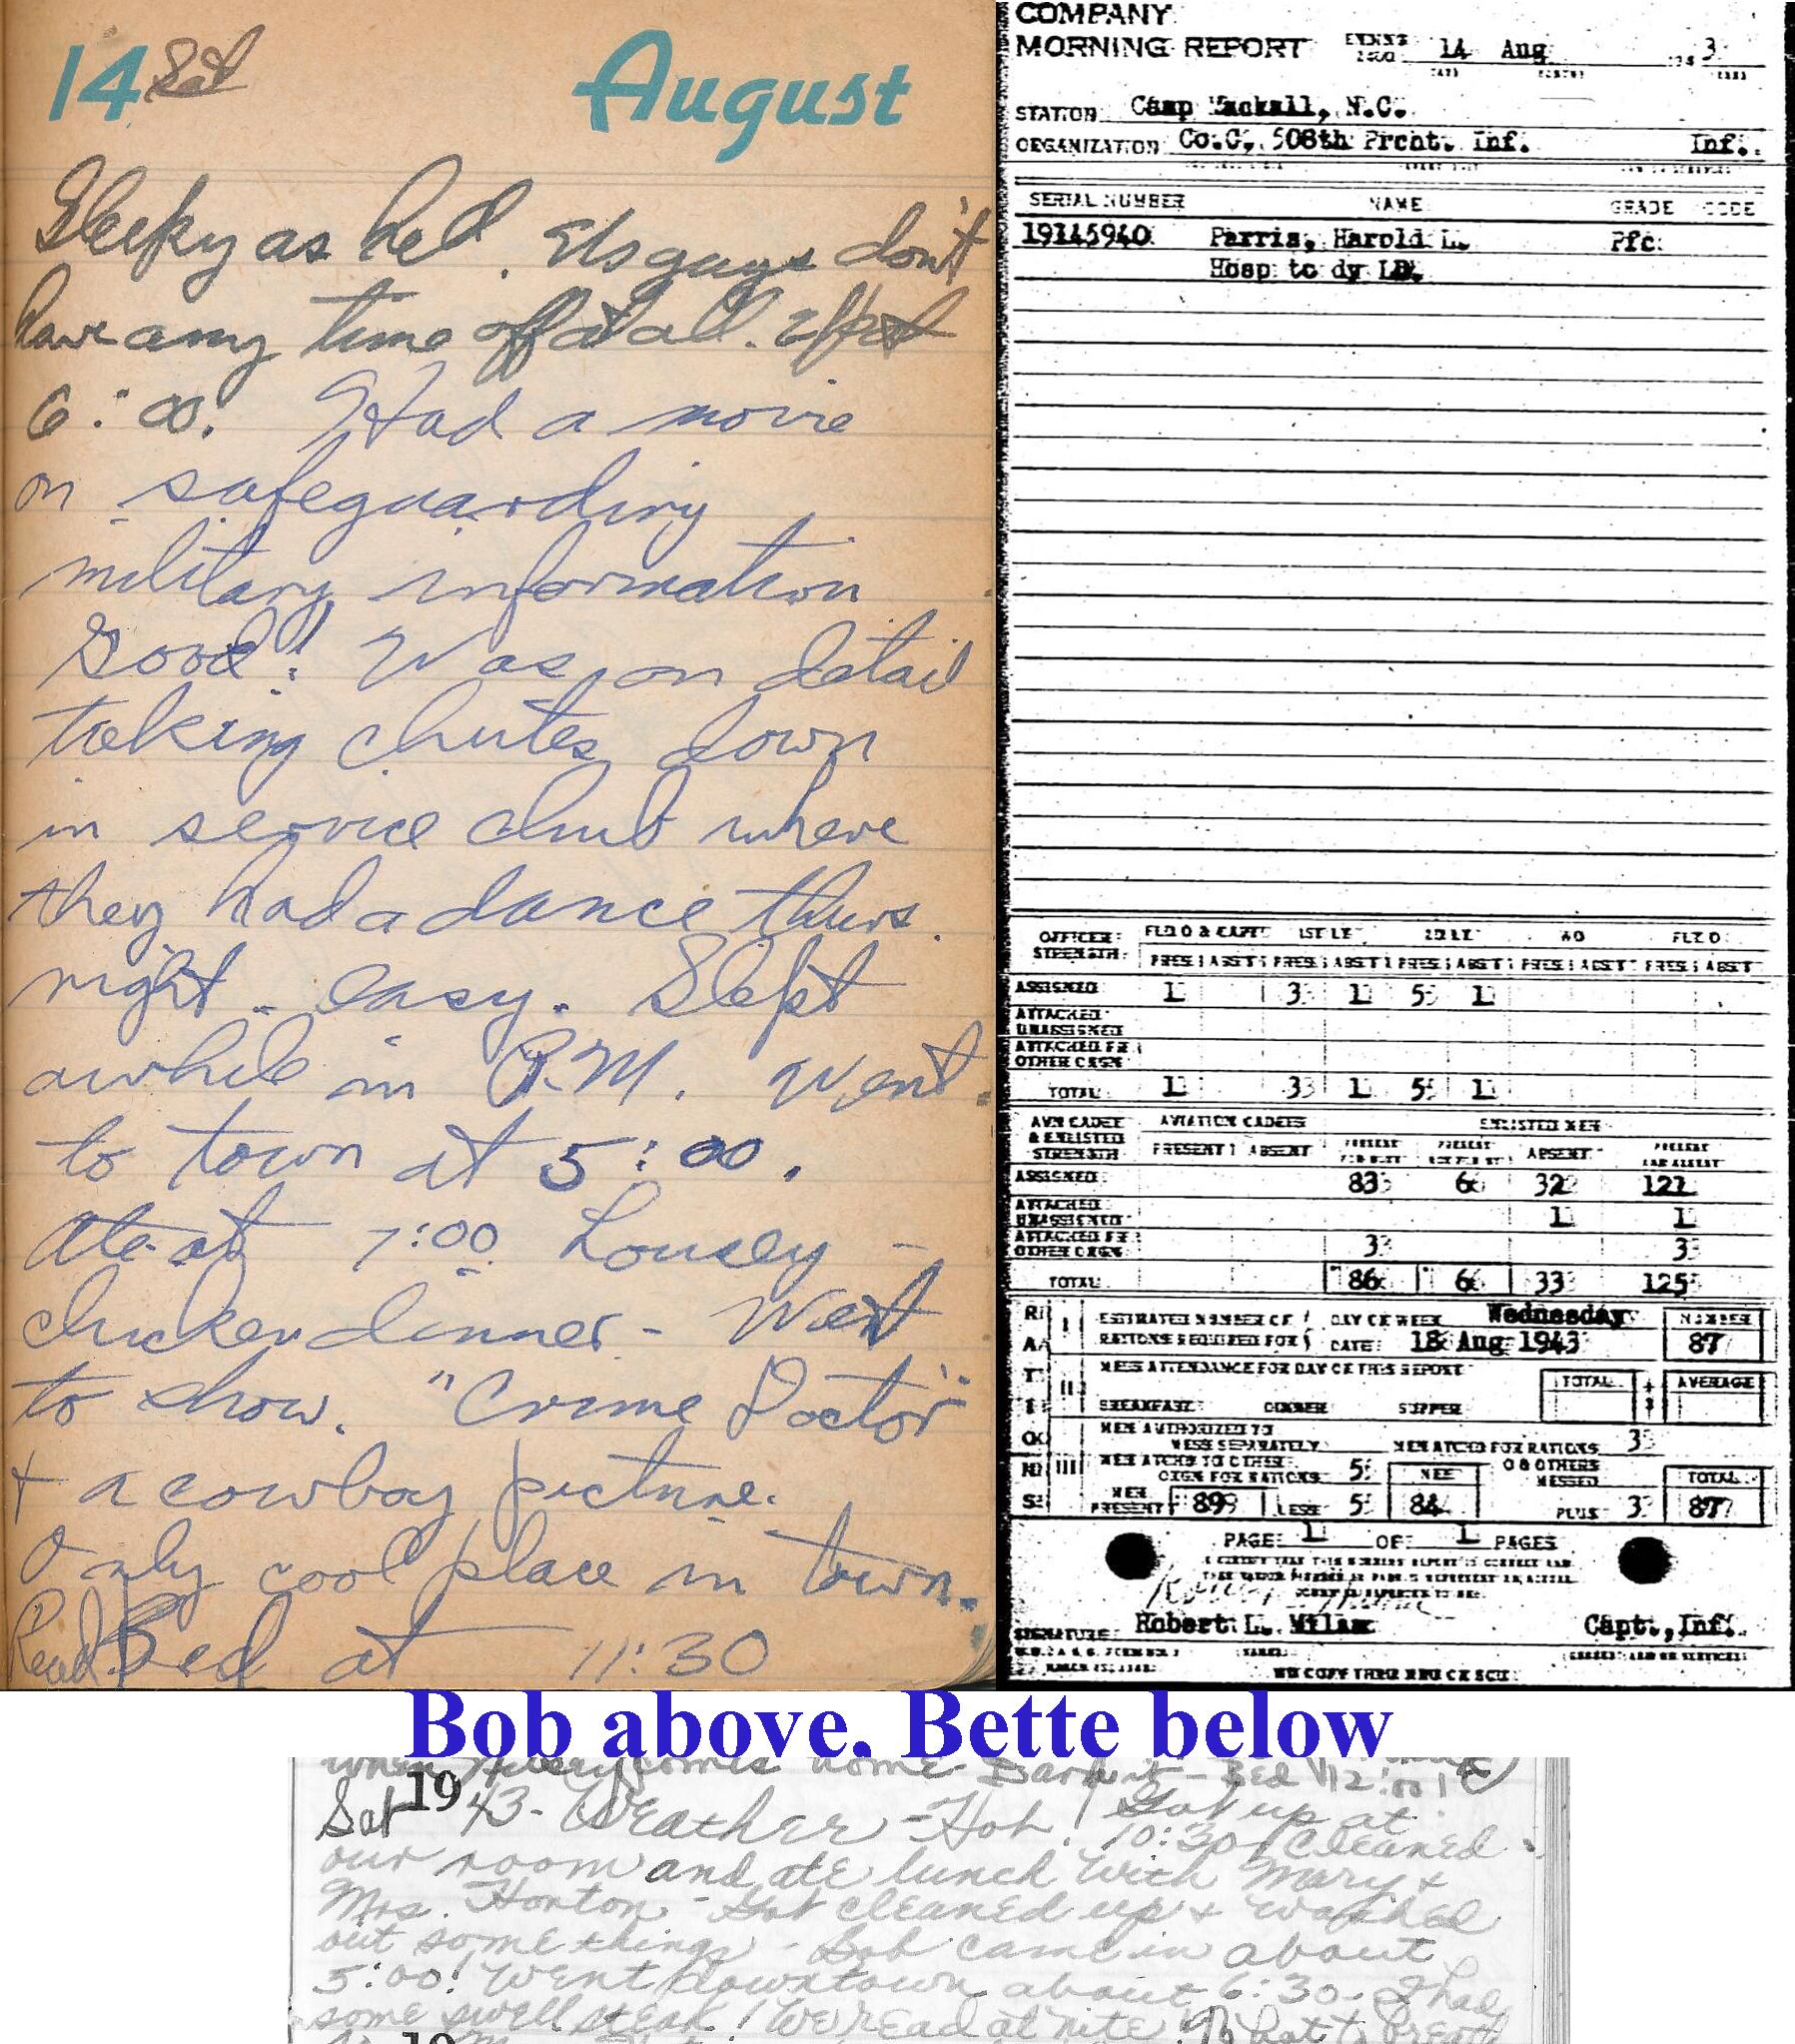 14 Sat August
Sleepy as hell. Us guys don't
have any time off at all. Up at
6:00. Had a movie
on safeguarding
military information
Good! Was on detail
taking chutes down
in service club where
they had a dance thurs.
night - easy. Slept
awhile in P.M. Went
to town at 5:00.
Ate at 7:00 Lousey -
chicken dinner - Went
to show. "Crime Doctor"
+ a cowboy picture.
Only cool place in town.
Read. Bed at 11:30
COMPANY
MORNING REPORT ENDING 2400 14 Aug 1943
STATION Camp Mackall, N.C.
ORGANIZATION Co.C, 508th Prcht. Inf. Inf.
SERIAL NUMBER NAME GRADE CODE
19145940 Parris, Harold L. Pfc
Hosp to dy LD.
OFFICER STRENGTH FLD O & CAPT 1ST LT 2D LT WO FLT O
PRES ABST PRES ABST PRES ABST PRES ABST PRES ABST
ASSIGNED 1 3 1 5 1
ATTACHED UNASSIGNED
ATTACHED FR OTHER ORGN
TOTAL 1 3 1 5 1
AVN CADET & ENLISTED STRENGTH AVIATION CADETS ENLISTED MEN
PRESENT ABSENT PRESENT FOR DUTY PRESENT NOT FOR DUTY ABSENT PRESENT AND ABSENT
ASSIGNED 83 6 32 121
ATTACHED UNASSIGNED 1 1
ATTACHED FR OTHER ORGN 3 3
TOTAL 86 6 33 125
RATIONS
I ESTIMATED NUMBER OF RATIONS REQUIRED FOR DAY OF WEEK Wednesday NUMBER
DATE 18 Aug 1943 87
II MESS ATTENDANCE FOR DAY OF THIS REPORT TOTAL AVERAGE
BREAKFAST DINNER SUPPER
III MEN AUTHORIZED TO MESS SEPARATELY MEN ATCHD FOR RATIONS 3
MEN ATCHD TO OTHER ORGN FOR RATIONS 5 NET & OTHERS MESSED TOTAL
MEN PRESENT 89 LESS 5 84 PLUS 3 87
PAGE 1 OF 1 PAGES
I CERTIFY THAT THIS MORNING REPORT IS CORRECT AND
SIGNATURE Robert L. Milam Capt., Inf.
Bob above, Bette below
comes home - Bed 12:00
Sat 1943 - Weather - Hot! Got up at
10:30! Cleaned
our room and ate lunch with Mary +
Mrs. Horton - Got cleaned up + washed
out some things - Bob came in about
5:00! Went downtown about 6:30 - I had
some swell steak! We read at nite
19